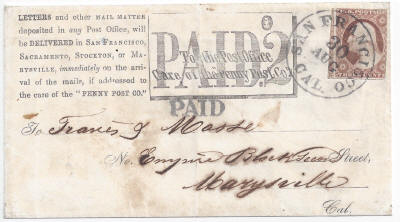 LETTERS and other MAIL MATTER
deposited in any Post Office, will
be DELIVERED IN SAN FRANCISCO,
SACRAMENTO, STOCKTON, OR MA-
RYSVILLE, immediately on the arri-
val of the mails, if addressed to
the care of the "PENNY POST CO."
PAID
To the Post Office
Care of the Penny Post Co.
SAN FRANCISCO
30
AUG
CAL.
PAID
To Frances J Masse
No. Empire Block Street,
Marysville
Cal.